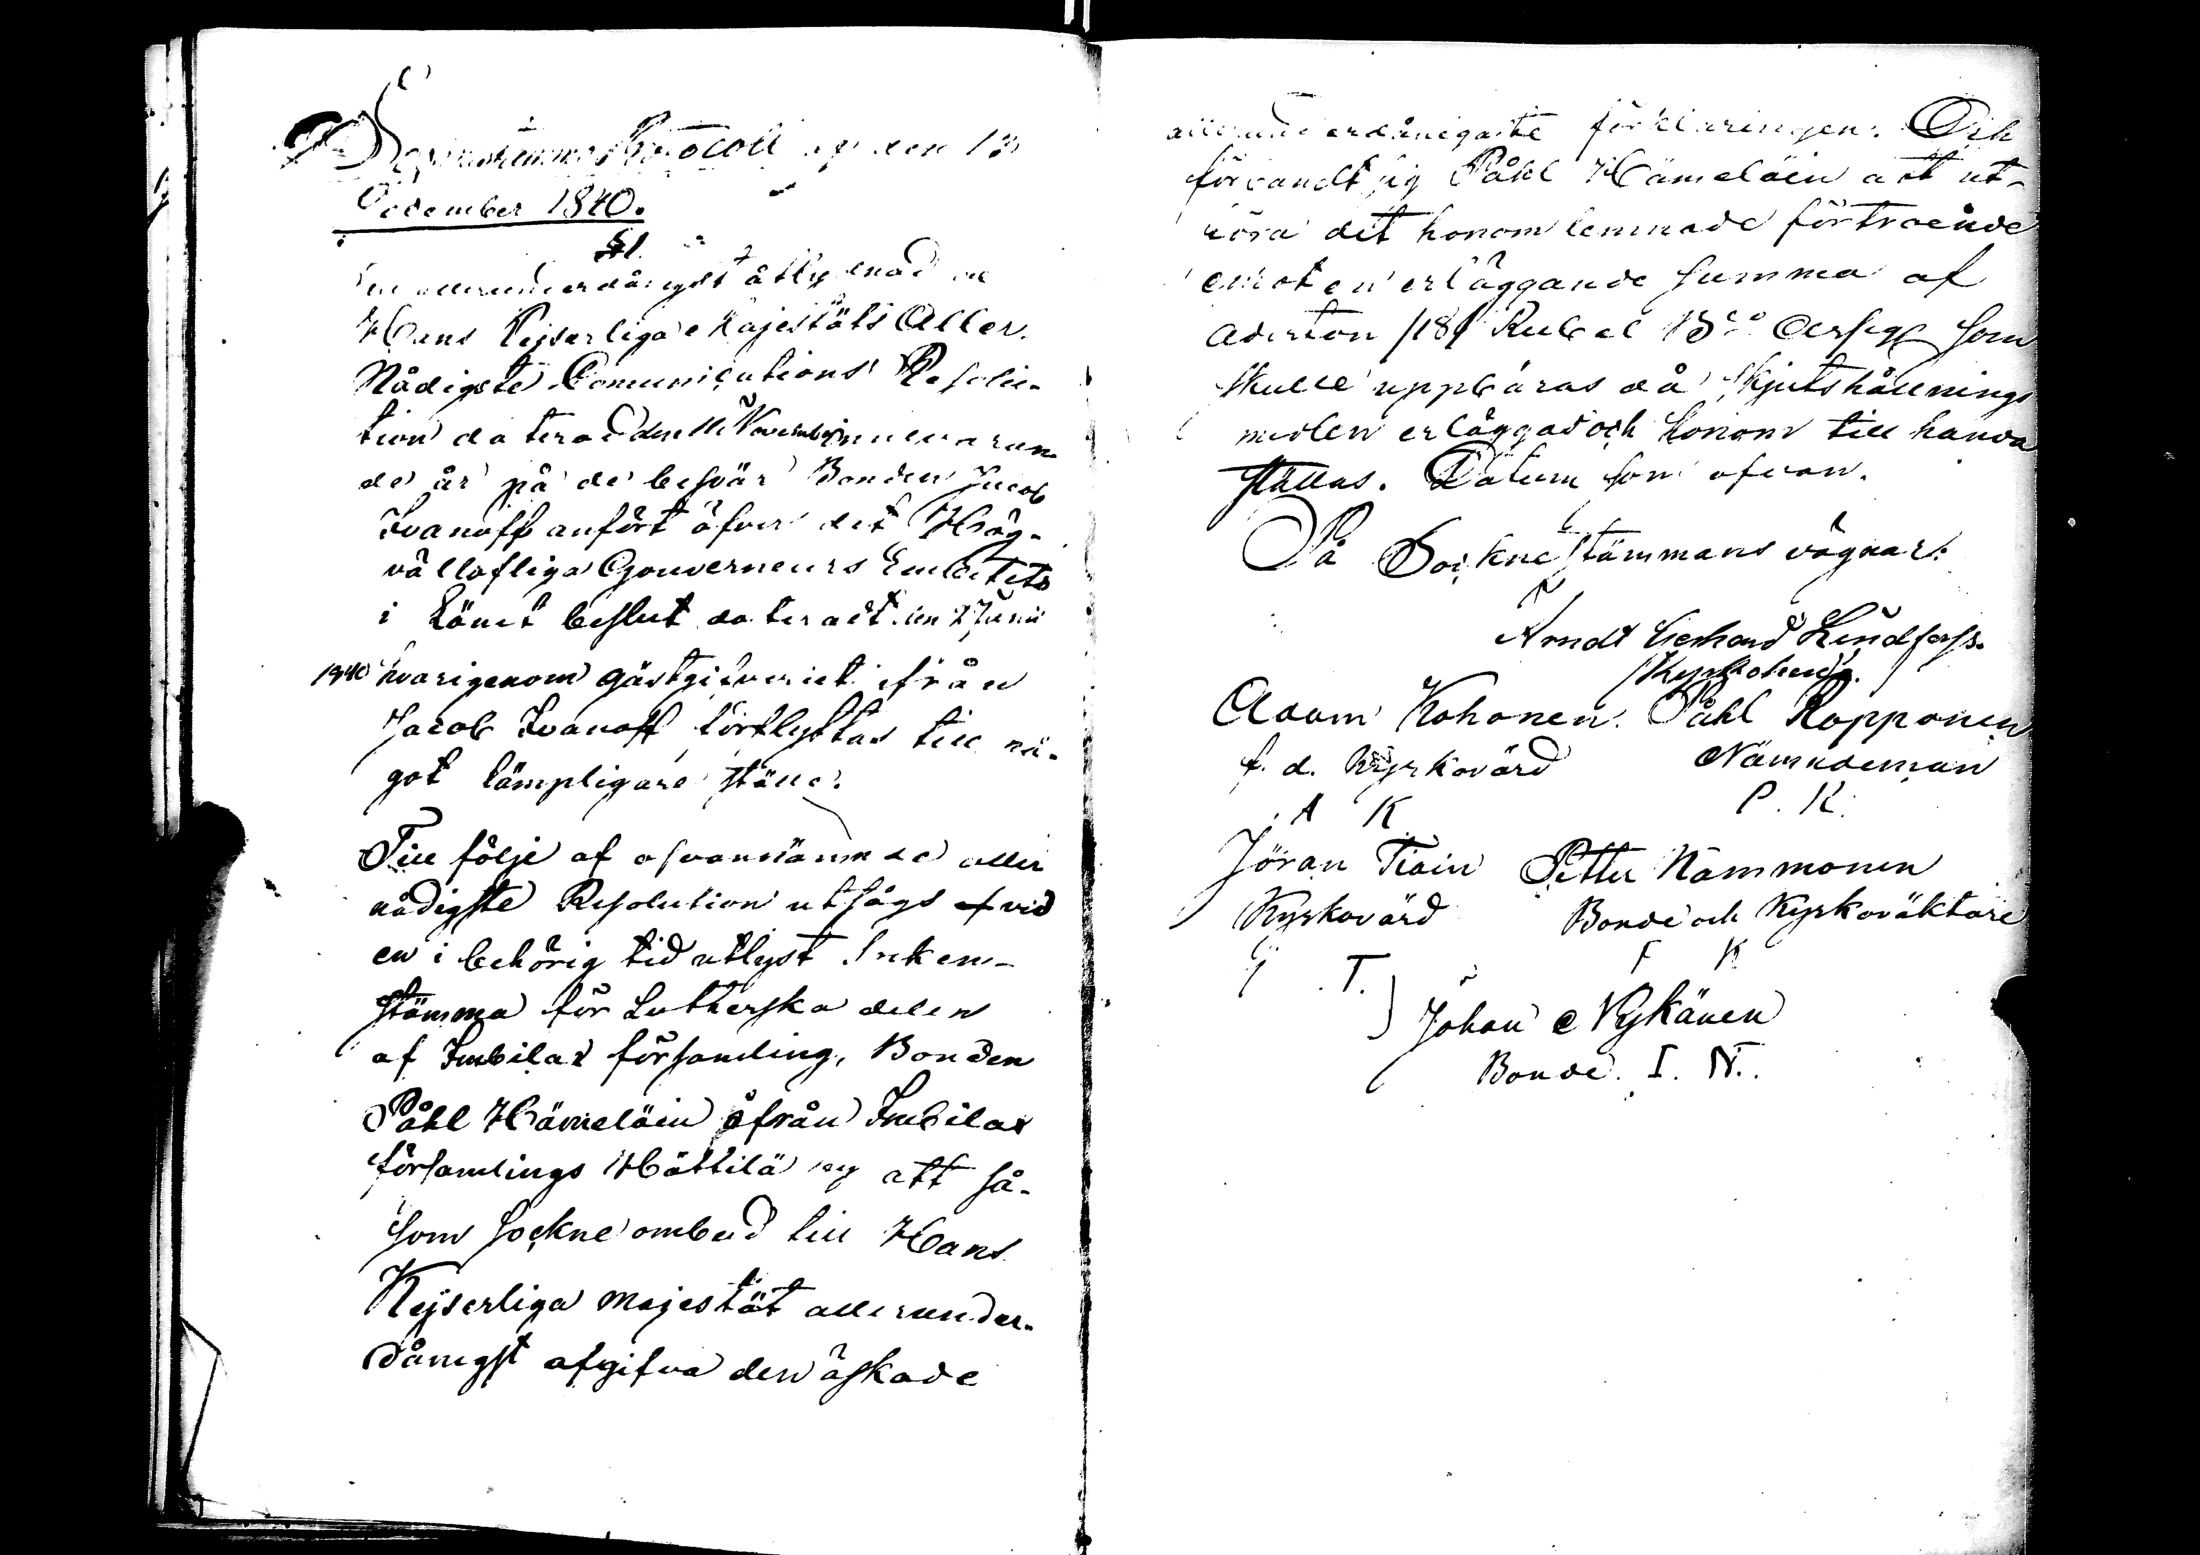 Sockenstämmos Protocoll af den 13
December 1840.
§1.
allerunderdånigst åtlydnad
Hans Kejserliga Majestäts Aller.
Nådigste Comunications Resolu-
tion daterad den 11 November innevaran-
de år på de besvär Bonden Jacob
Ivanoff anfört öfver det Hög-
vällofliga Gouverneurs Embetets
i Länet beslut dateradt den 2 Junii
1840 hvarigenom gästgifveriet ifrån
Jacob Ivanoff förflyttas till nå-
got lämpligare ställe.
Till följe af ofvannämnde aller
nådigste Resolution utsågs af vid
en i behörig tid utlyst Soken-
stämma för Lutherska delen
af Imbilax församling, Bonden
Påhl Hämeläin ifrån Imbilax
församlings Hättilä by att så-
som sockne ombud till Hans
Kejserliga Majestät allerunder-
dånigst afgifva den äskade
allerunderdånigaste förklaringen. Och
förbandt sig Påhl Hämeläin att ut-
röra det honom lemnade förtroende
emot en erläggande summa af
Aderton /18/ Rubel B:co Assign som
skulle uppbäras då skjutshållnings
medlen erläggas och honom till handa
ställas. Datum som ofvan.
På Sockne stämmans vägnar:
Arndt Gerhard Lindforss.
Kyrkoherde.
Adam Kohonen. Påhl Ropponen
f. d. Kyrkovärd Nämndeman
A K P. R.
Jöran Tiain Petter Nämmonen
Kyrkovärd Bonde och Kyrkoväktare
G. T.
Johan Nykänen
Bonde. I. N.